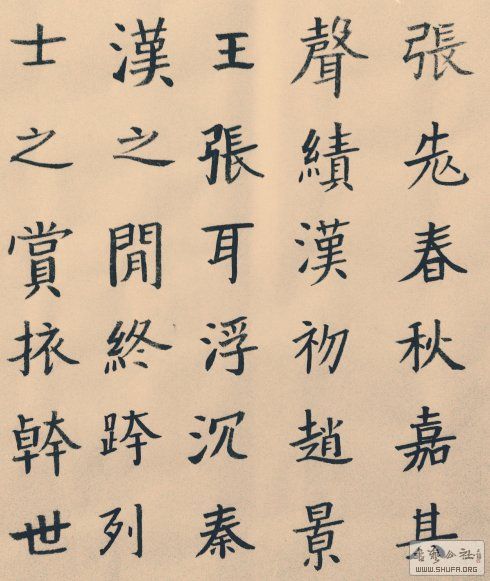 張老春秋嘉其
聲績漢初趙景
王張耳浮沉秦
漢之閒終跨列
士之賞幹世
書藝公社
WWW.SHUFA.ORG